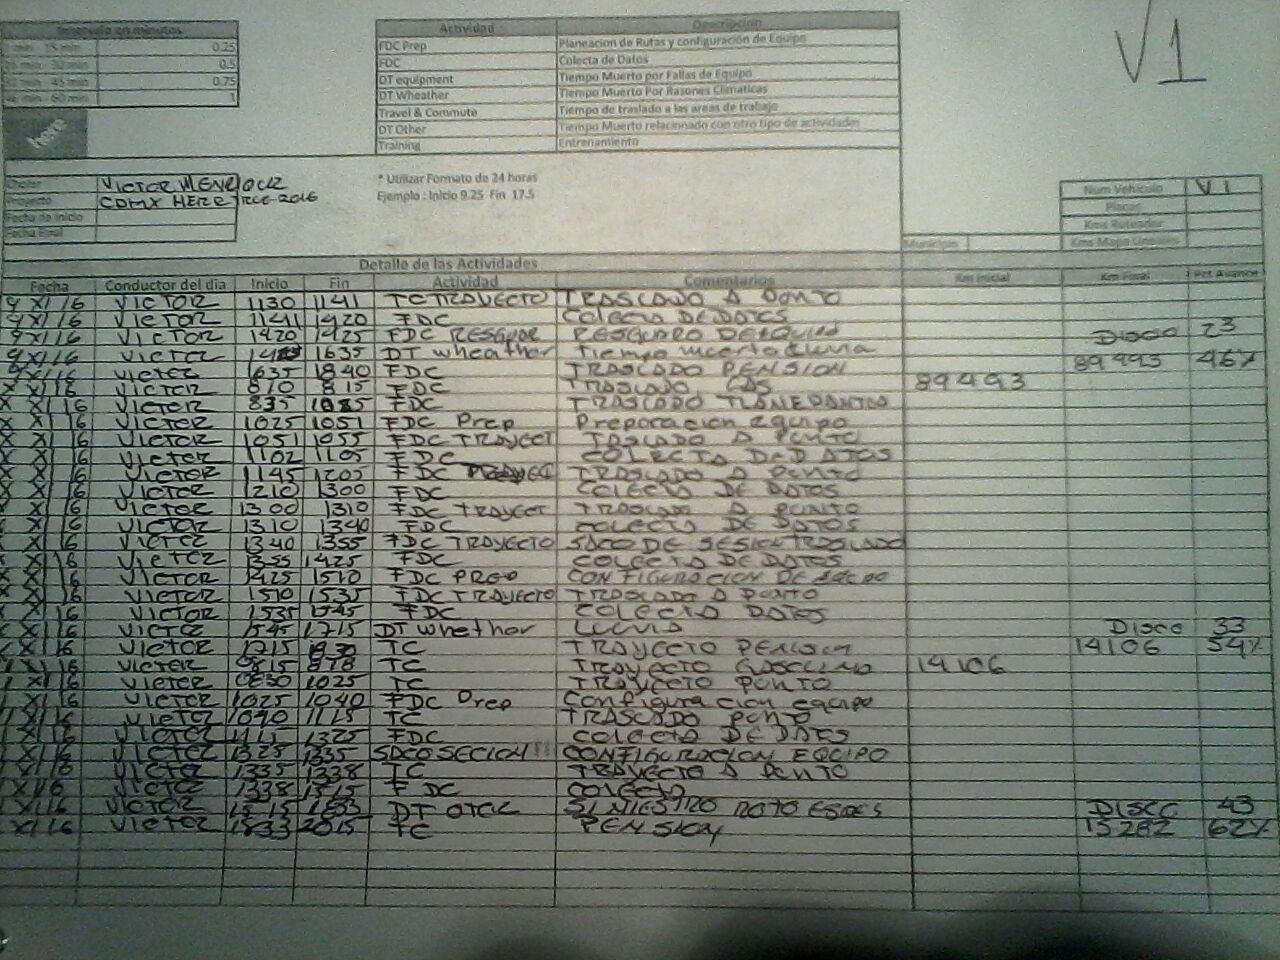 V1
Intervalo en minutos
min 15 min 0.25
min 30 min 0.5
min 45 min 0.75
min 60 min 1
here
Actividad Descripcion
FDC Prep Planeacion de Rutas y configuración de Equipo
FDC Colecta de Datos
DT equipment Tiempo Muerto por Fallas de Equipo
DT Wheather Tiempo Muerto Por Razones Climaticas
Travel & Commute Tiempo de traslado a las areas de trabajo
DT Other Tiempo Muerto relacionnado con otro tipo de actividades
Training Entrenamiento
Chofer VICTOR
Proyecto CDMX HERE 2016
Fecha de Inicio
Fecha Final
* Utilizar Formato de 24 horas
Ejemplo : Inicio 9.25 Fin 17.5
Num Vehiculo V1
Placas
Kms Ruteador
Municipio Kms Mapa
Detalle de las Actividades
Fecha Conductor del dia Inicio Fin Actividad Comentarios Km Inicial Km Final Pct Avance
9 XI 16 VICTOR 1130 1141 TC TRAYECTO TRASLADO A PONTO
9 XI 16 VICTOR 1141 1420 FDC COLECTA DE DATOS
9 XI 16 VICTOR 1420 1425 FDC RESGUAR Disco 23
9 XI 16 VICTOR 1635 DT wheather Tiempo muerto lluvia 46%
XI 16 VICTOR 1635 1840 FDC TRASLADO PENSION
XI 16 VICTOR 810 815 FDC TRASLADO GAS 89493
X XI 16 VICTOR 835 FDC TRASLADO
X XI 16 VICTOR 1025 1051 FDC Prep Preparacion equipo
X XI 16 VICTOR 1051 1055 FDC TRAYECT TRASLADO A PUNTO
X XI 16 VICTOR 1102 1105 FDC COLECTA DE DATOS
X XI 16 VICTOR 1145 1205 FDC TRASLADO A PONTO
X XI 16 VICTOR 1210 1300 FDC COLECTA DE DATOS
X XI 16 VICTOR 1300 1310 FDC TRAYECT TRASLADO A PUNTO
X XI 16 VICTOR 1310 1340 FDC COLECTA DE DATOS
X XI 16 VICTOR 1340 1355 FDC TRAYECTO SACO DE SESION TRASLADO
X XI 16 VICTOR 1355 1425 FDC COLECTA DE DATOS
X XI 16 VICTOR 1425 1510 FDC PREP CONFIGURACION DE
X XI 16 VICTOR 1510 1535 FDC TRAYECTO TRASLADO A PUNTO
X XI 16 VICTOR 1535 1545 FDC COLECTA DATOS
X XI 16 VICTOR 1545 1715 DT whether LLUVIA Disco 33
XI 16 VICTOR 1715 TC TRAYECTO PENSION 14106 54%
XI 16 VICTOR TC TRAYECTO 14106
XI 16 VICTOR 1025 TC TRAYECTO PONTO
XI 16 VICTOR 1025 1040 FDC Prep Configuracion equipo
XI 16 VICTOR 1040 1115 TC TRASLADO PONTO
XI 16 VICTOR 1115 1325 FDC COLECTA DE DATOS
XI 16 VICTOR 1325 1335 SACO SECION CONFIGURACION EQUIPO
XI 16 VICTOR 1335 1338 TC TRAYECTO A PONTO
XI 16 VICTOR 1338 1515 FDC COLECTA
XI 16 VICTOR 1515 DT OTER SINIESTRO Disco 43
XI 16 VICTOR 2015 TC PENSION 15282 62%